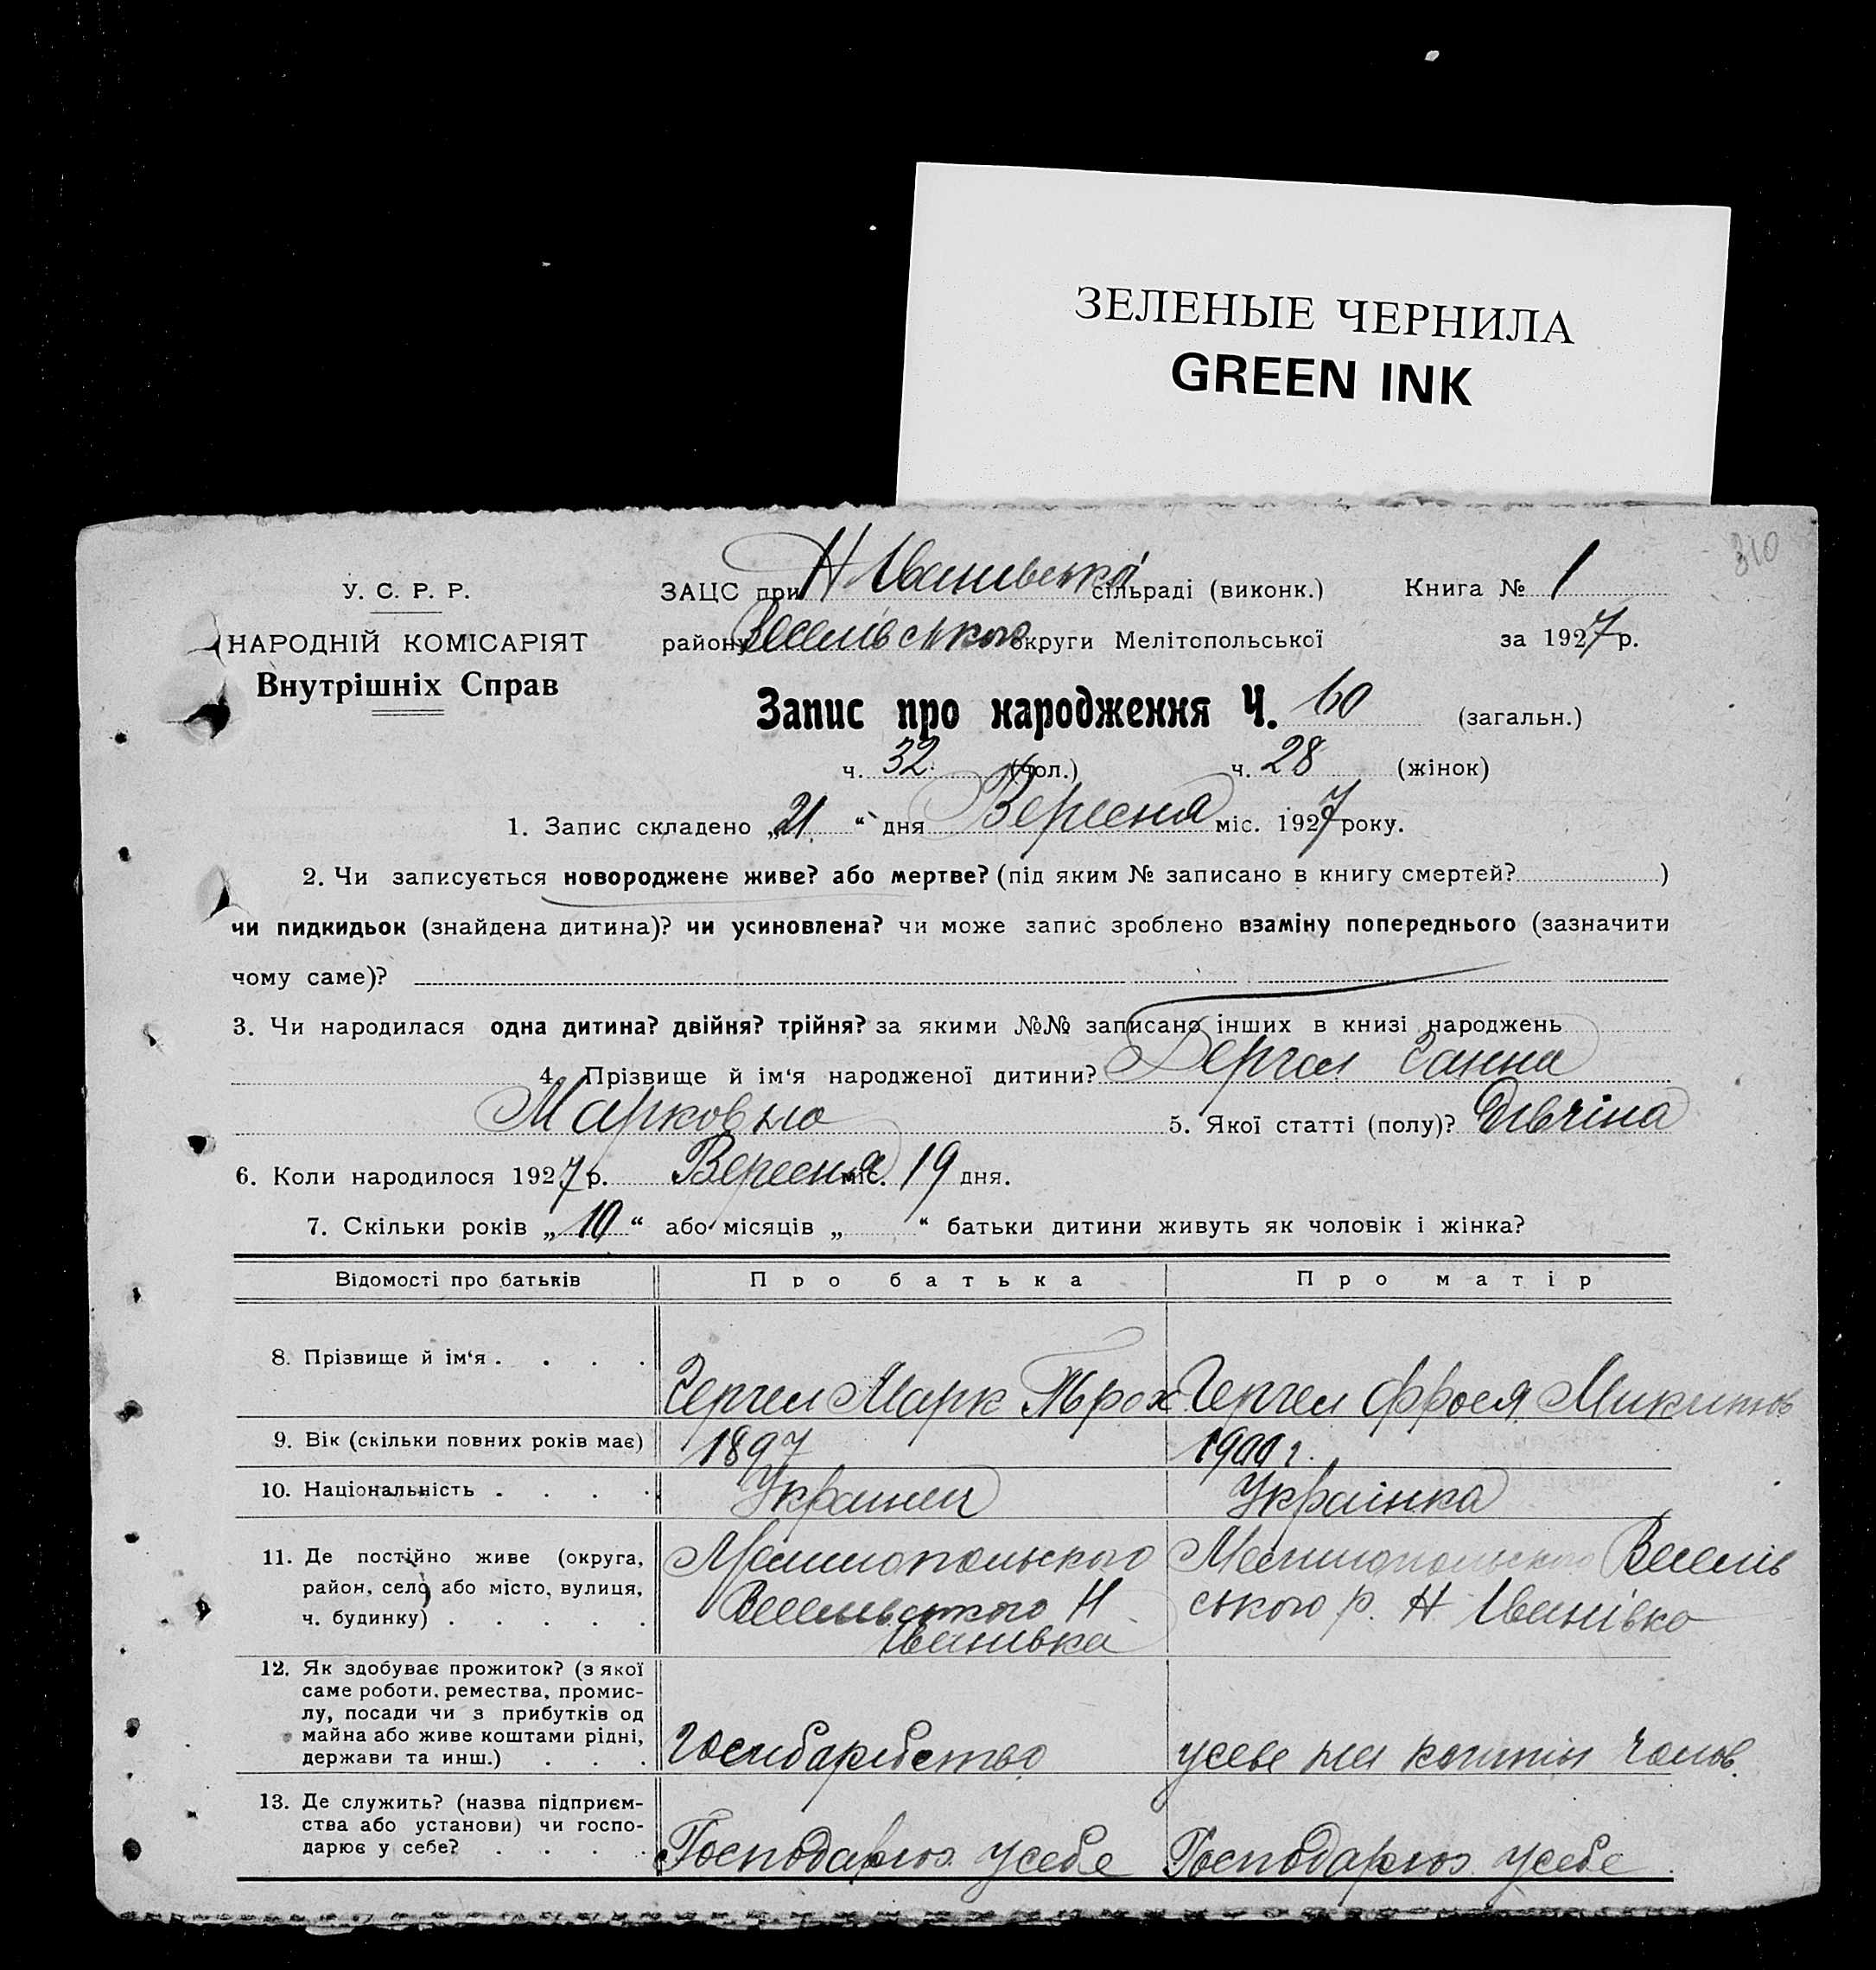 ЗЕЛЕНЫЕ ЧЕРНИЛА
GREEN INK
310
У. С. Р. Р.
НАРОДНІЙ КОМІСАРІЯТ
Внутрішніх Справ
ЗАЦС при Н Іванивській сільраді (виконк.) Книга № 1
району Веселівського округи Мелітопольської за 1927 р.
Запис про народження Ч. 60 (загальн.)
ч. 32 (чол.) ч. 28 (жінок)
1. Запис складено „21“ дня Вересня міс. 1927 року.
2. Чи записується новороджене живе? або мертве? (під яким № записано в книгу смертей? )
чи пидкидьок (знайдена дитина)? чи усиновлена? чи може запис зроблено взаміну попереднього (зазначити
чому саме)?
3. Чи народилася одна дитина? двійня? трійня? за якими №№ записано інших в книзі народжень
4. Прізвище й ім‘я народженої дитини? Ганна
Марковна 5. Якої статті (полу)? Дівчіна
6. Коли народилося 1927 р. Вересня міс. 19 дня.
7. Скільки років „10“ або місяців „ “ батьки дитини живуть як чоловік і жінка?
Відомості про батьків Про батька Про матір
8. Прізвище й ім‘я . . . . Гергел Марк Трох Гергел Фрося Микитов
9. Вік (скільки повних років має) 1897 1900 г.
10. Національність . . . . Украинец Українка
11. Де постійно живе (округа, Мелитопольского Мелитопольского Веселів
район, село або місто, вулиця, Веселивського Н ського р. Н Іванівка
ч. будинку) . . . . . Іванивка
12. Як здобуває прожиток? (з якої
саме роботи, ремества, промис-
лу, посади чи з прибутків од
майна або живе коштами рідні,
держави та инш.) . . . на кошти Чолов.
13. Де служить? (назва підприєм-
ства або установи) чи госпо-
дарює у себе? . . . . Господарює усебе Господарює усебе